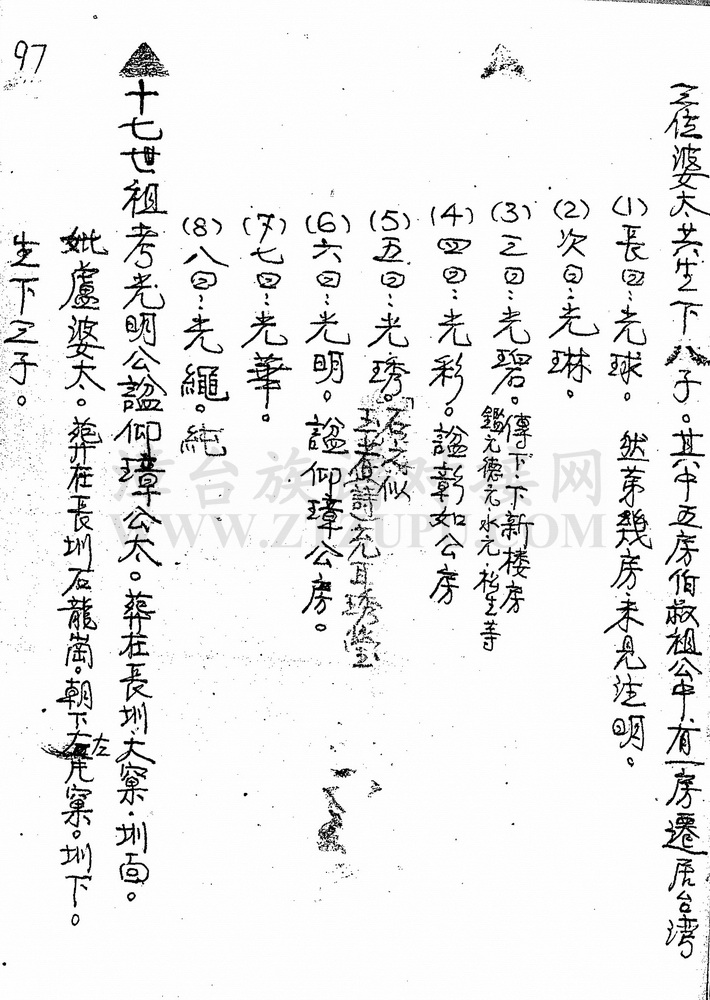 三位婆太共生下八子。其中五房伯叔祖公中有一房遷居台湾
然第幾房、未見注明。
(1)長曰:光球。
(2)次曰:光琳。
(3)三曰:光碧。傳下下新楼房
鑑元德元水元、彩生等
(4)四曰:光彩。諡彰如公房
(5)五曰:光琇。
(6)六曰:光明。諡仰璋公房。
(7)七曰:光華。
(8)八曰:光繩。純
十七世祖考光明公諡仰璋公太。葬在長圳、大窠、圳面。
妣盧婆太。葬在長圳石龍崗。朝下左片窠。圳下。
生下三子。
97
漳台族谱对接网
WWW.ZTZUPU.COM